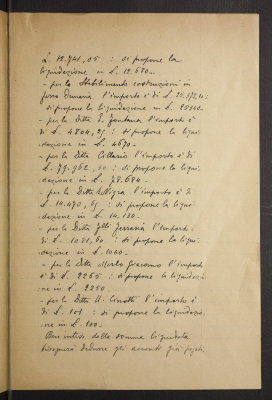 L. 12.741,05 : si propone la
liquidazione in L. 12.670.-
- per lo Stabilimento costruzioni in
ferro l'importo è di L.
si propone la liquidazione in L.
- per la Ditta E. Fontana l'importo è
di L. 4704,25 : si propone la liqui
dazione in L. 4670.-
- per la Ditta Collario l'importo è di
L. 79.962,50 : si propone la liqui.
dazione in L. 78.680.-
- per la Ditta l'importo è di
L. 14.470,65 : si propone la liqui-
dazione in L. 14.130.-
- per la Ditta F.lli Ferraria l'importo
di L. 1071,50 : si propone la liqui-
dazione in L. 1060.-
- per la Ditta Giacomo l'importo
è di L. 2265 : si propone la liquidazio
ne in L. 2250.
- per la Ditta U. l'importo è
di L. 101 : si propone la liquidazio,
ne in L. 100.-
Ben inteso dalle somme liquidate
bisognerà dedurre gli acconti già pagati.